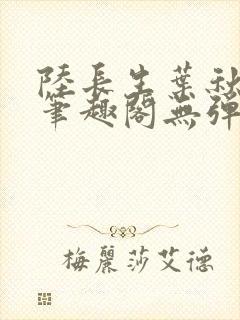 陸長生葉秋
筆趣閣無彈
梅麗莎艾德